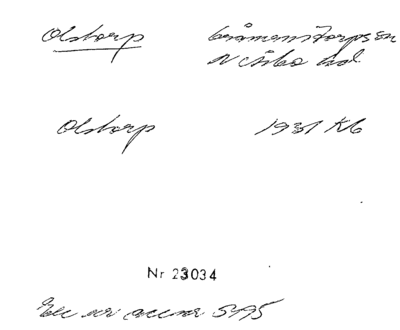 Olstorp Gråmanstorps sn
N Åsbo hd.
Olstorp 1931 Kb
Nr 23034